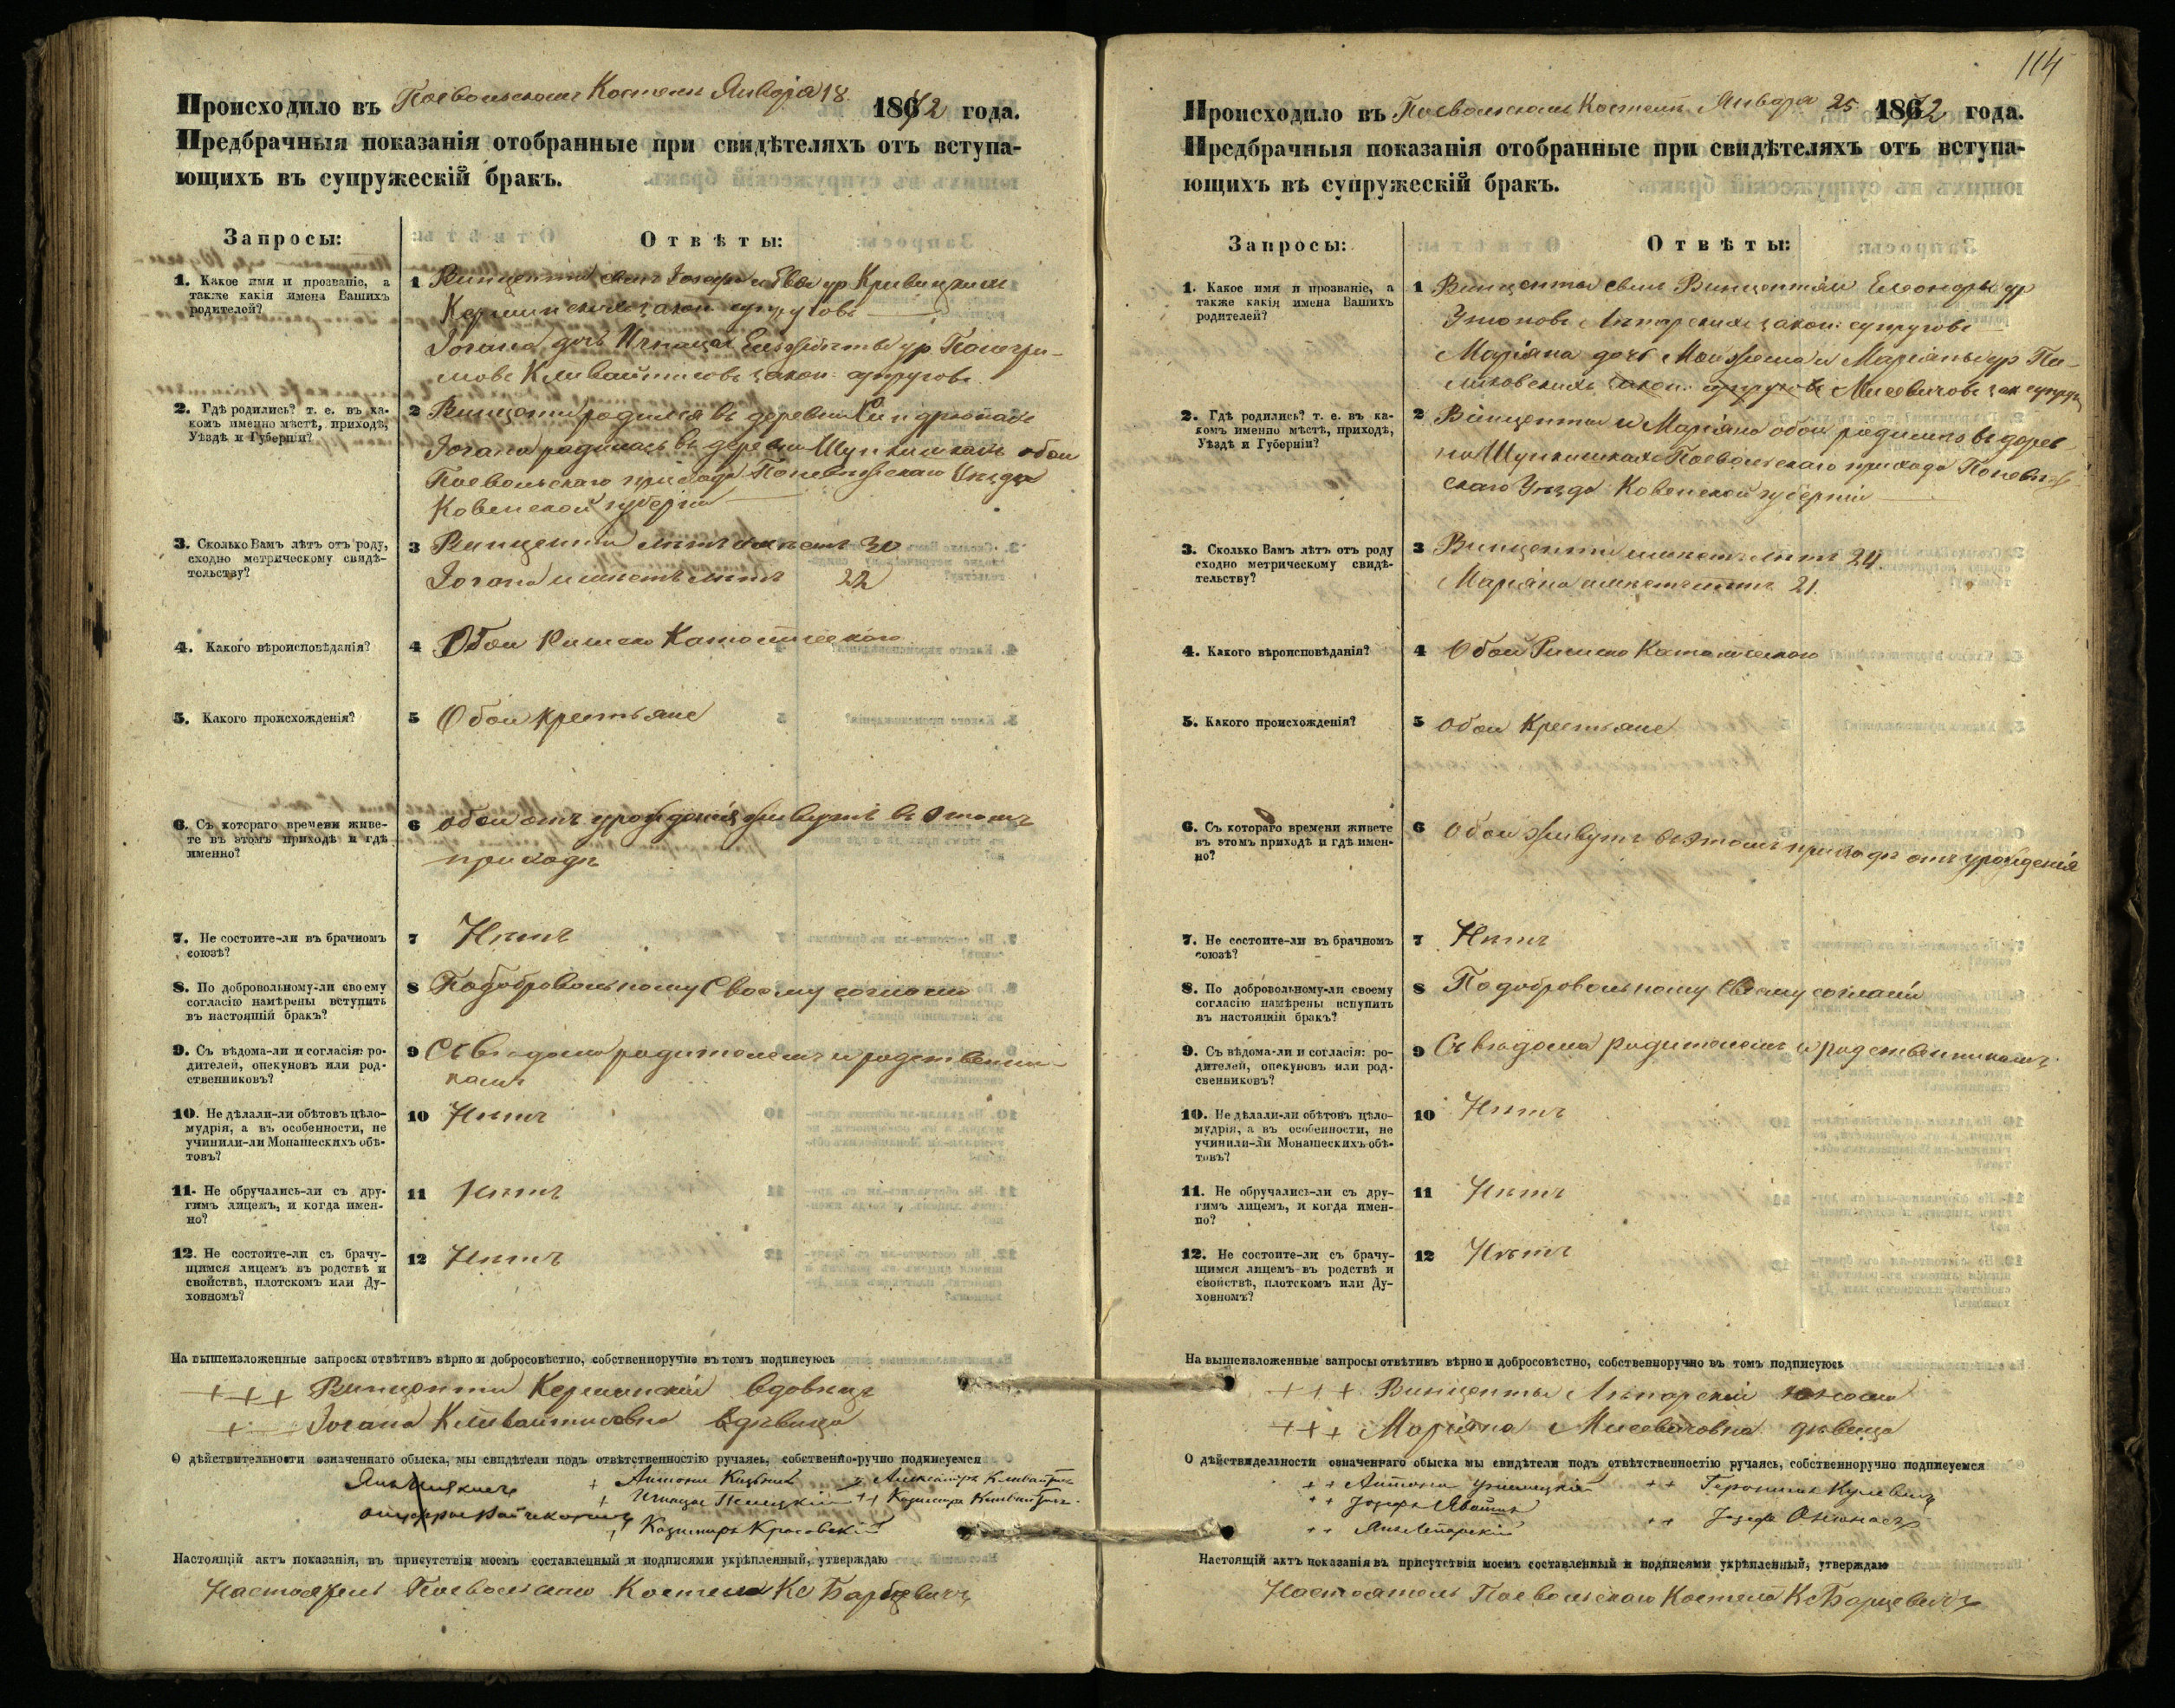 Происходило въ Поевольскомъ Костелѣ Января 18 1872 года.
Предбрачныя показанія отобранные при свидѣтеляхъ отъ вступа-
ющихъ въ супружескій бракъ.
Запросы:
Отвѣты:
1. Какое имя и прозваніе, а
также какія имена Вашихъ
родителей?
1 Винценты сынъ Іозефа и Евы ур Кривицкихъ
законн супруговъ
Іогана дочь Игнація Ельжбѣты ур
законн супруговъ
2. Гдѣ родились? т. е. въ ка-
комъ именно мѣстѣ, приходѣ,
Уѣздѣ и Губерніи?
2 Винценты родился въ деревни
Іогана родилась въ деревни обои
Поевольскаго прихода Поневѣжскаго Уѣзда
Ковенской губерніи
3. Сколько Вамъ лѣтъ отъ роду,
сходно метрическому свидѣ-
тельству?
3 Винценты лѣтъ имѣетъ 30
Іогана имѣетъ лѣтъ 22
4. Какого вѣроисповѣданія?
4 Обои Римско Католического
5. Какого происхожденія?
5 Обои крестьяне
6. Съ котораго времени живе-
те въ этомъ приходѣ и гдѣ
именно?
6 обои отъ урожденія живутъ въ этомъ
приходѣ
7. Не состоите-ли въ брачномъ
союзѣ?
7 Нѣтъ
8. По добровольному-ли своему
согласію намѣрены вступить
въ настоящій бракъ?
8 По добровольному Своему согласію
9. Съ вѣдома-ли и согласія: ро-
дителей, опекуновъ или род-
ственниковъ?
9 Съ вѣдома родителемъ и родственни-
камъ
10. Не дѣлали-ли обѣтовъ цѣло-
мудрія, а въ особенности, не
учинили-ли Монашескихъ обѣ-
товъ?
10 Нѣтъ
11. Не обручались-ли съ дру-
гимъ лицемъ, и когда имен-
но?
11 Нѣтъ
12. Не состоите-ли съ брачу-
щимся лицемъ въ родствѣ и
свойствѣ, плотскомъ или Ду-
ховномъ?
12 Нѣтъ
На вышеизложенные запросы отвѣтивъ вѣрно и добросовѣстно, собственноручно въ томъ подписуюсь
+++ Винценты вдовецъ
+ Іогана дѣвица
О дѣйствительности означеннаго обыска, мы свидѣтели подъ отвѣтственностію ручаясь, собственно-ручно подписуемся
+ Антони ++ Александръ
+ Игнацы ++ Казимиръ
+ Казимиръ Красовскій
Настоящій актъ показанія, въ присутствіи моемъ составленный и подписями укрѣпленный, утверждаю
Настоятель Поевольскаго Костела Кс Барцевичъ
114
Происходило въ Поевольскомъ Костелѣ Января 25 1872 года.
Предбрачныя показанія отобранные при свидѣтеляхъ отъ вступа-
ющихъ въ супружескій бракъ.
Запросы:
Отвѣты:
1. Какое имя и прозваніе, а
также какія имена Вашихъ
родителей?
1 Винценты сынъ Винцентія Елеоноры ур
законн: супруговъ
Маріяна дочь и Маріаны ур Па-
ликовскихъ законн: супруговъ Мисевичовъ зак супруг
2. Гдѣ родились? т. е. въ ка-
комъ именно мѣстѣ, приходѣ,
Уѣздѣ и Губерніи?
2 Винценты и Маріяна обои родились въ дерев
Поевольскаго прихода Поневѣж
скаго Уѣзда Ковенской губерніи
3. Сколько Вамъ лѣтъ отъ роду
сходно метрическому свидѣ-
тельству?
3 Винценты имѣетъ лѣтъ 24
Маріяна имѣетъ лѣтъ 21.
4. Какого вѣроисповѣданія?
4 Обои Римско Католическаго
5. Какого происхожденія?
5 Обои Крестьяне
6. Съ котораго времени живете
въ этомъ приходѣ и гдѣ имен-
но?
6 Обои живутъ въ этомъ приходѣ отъ урожденія
7. Не состоите-ли въ брачномъ
союзѣ?
7 Нѣтъ
8. По добровольному-ли своему
согласію намѣрены вспупить
въ настоящій бракъ?
8 По добровольному Своему согласіи
9. Съ вѣдома-ли и согласія: ро-
дителей, опекуновъ или род-
свенниковъ?
9 Съ вѣдома родителемъ и родственникамъ
10. Не дѣлали-ли обѣтовъ цѣло-
мудрія, а въ особенности, не
учинили-ли Монашескихъ обѣ-
товъ?
10 Нѣтъ
11. Не обручались-ли съ дру-
гимъ лицемъ, и когда имен-
но?
11 Нѣтъ
12. Не состоите-ли съ брачу-
щимся лицемъ въ родствѣ и
свойствѣ, плотскомъ или Ду-
ховномъ?
12 Нѣтъ
На вышеизложенные запросы отвѣтивъ вѣрно и добросовѣстно, собственноручно въ томъ подписуюсь
+++ Винценты юноша
+++ Маріяна Мисевичовна дѣвица
О дѣйствидельности означеннаго обыска мы свидѣтели подъ отвѣтственностію ручаясь, собственноручно подписуемся
++ Антони ++ Геронимъ Кулевичъ
++ Іозефъ
++ Янъ ++ Іозефъ
Настоящій актъ показанія въ присутствіи моемъ составленный и подписями укрѣпленный, утверждаю
Настоятель Поевольскаго Костела Кс Барцевичъ